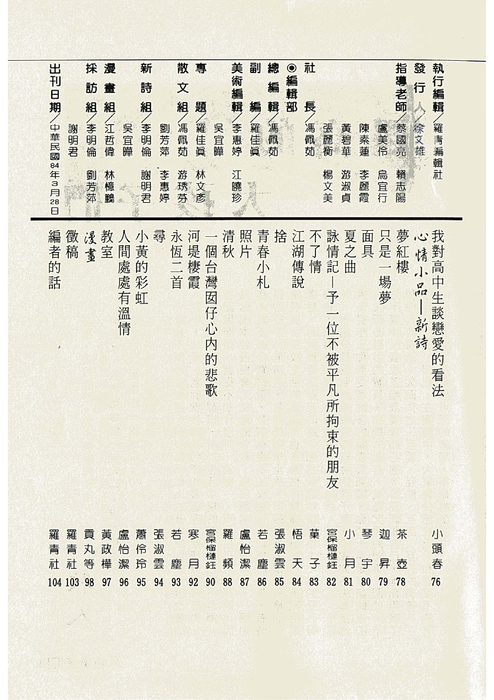 執行編輯／羅青編輯社
發行人／徐文雄
指導老師／蔡國亮 賴志陽
盧美伶 烏宜行
陳素蓮 李麗霞
黃碧華 游淑貞
張麗衡 楊文美
社長／馮佩茹
◉編輯部
總編輯／馮佩茹
副編／羅佳眞
美術編輯／李惠婷 江曉珍
專題／羅佳眞 林文彥
散文組／馮佩茹 游琇芬
劉芳萍 李惠婷
新詩組／李明倫 謝明君
吳宜曄
漫畫組／江哲偉 林樹鵬
採訪組／李明倫 劉芳萍
謝明君
出刊日期／中華民國84年3月28日
我對高中生談戀愛的看法 小頭春 76
心情小品—新詩
夢紅樓 茶壺 78
只是一場夢 迦昇 79
面具 琴宇 80
夏之曲 小月 81
詠情記—予一位不被平凡所拘束的朋友 宮保榴槤鈺 82
不了情 葉子 83
江湖傳說 悟天 84
捨 張淑雲 85
青春小札 若塵 86
照片 盧怡潔 87
清秋 羅頻 88
一個台灣囡仔心內的悲歌 宮保榴槤鈺 90
河堤棲霞 寒月 92
永恆二首 若塵 93
尋 張淑雲 94
小黃的彩虹 蕭伶玲 95
人間處處有溫情 盧怡潔 96
教室 黃政樺 97
漫畫 貢丸等 98
徵稿 羅青社 103
編者的話 羅青社 104